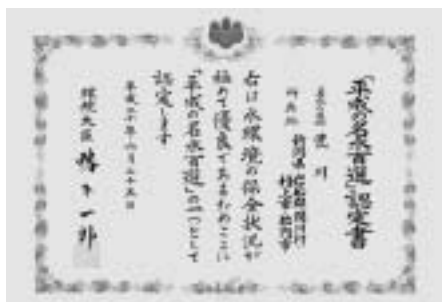 「平成の名水百選」認定書
荒川
新潟県
右は水環境の保全状況が
極めて優良であるためここに
「平成の名水百選」の一つとして
認定します
平成二十年六月二十五日
環境大臣 鴨下一郎